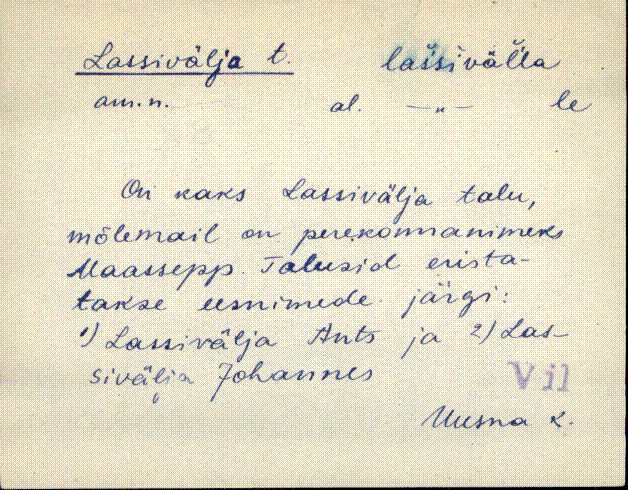 Lassivälja t. laššivälla
am.n. al. —„— le
On kaks Lassivälja talu,
mõlemail on perekonnanimeks
Maassepp. Talusid erista-
takse eesnimede järgi:
1) Lassivälja Ants ja 2) Las-
sivälja Johannes
Vil
Uusna k.